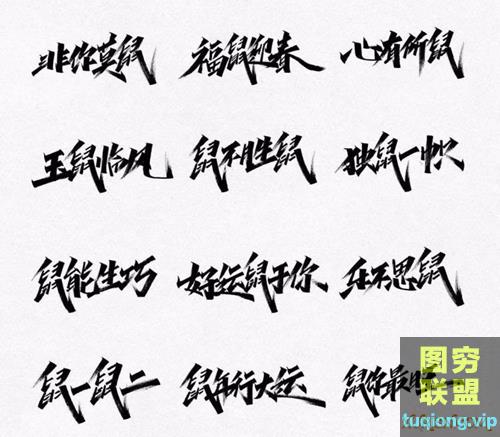 非你莫鼠 福鼠迎春 心有所鼠
玉鼠临风 鼠不胜鼠 独鼠一帜
鼠能生巧 好运鼠于你 乐不思鼠
鼠一鼠二 鼠年行大运 鼠你最
图穷
联盟
tuqiong.vip